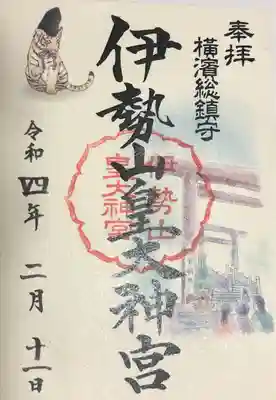 奉拝
横濱総鎮守
伊勢山皇大神宮
伊勢山
皇大神宮
令和四年 二月 十一日